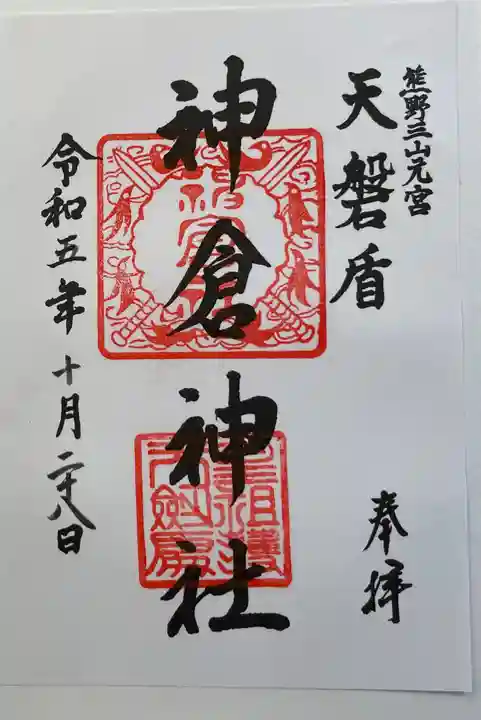 熊野三山元宮
天磐盾
奉拝
神倉神社
令和五年十月二十八日